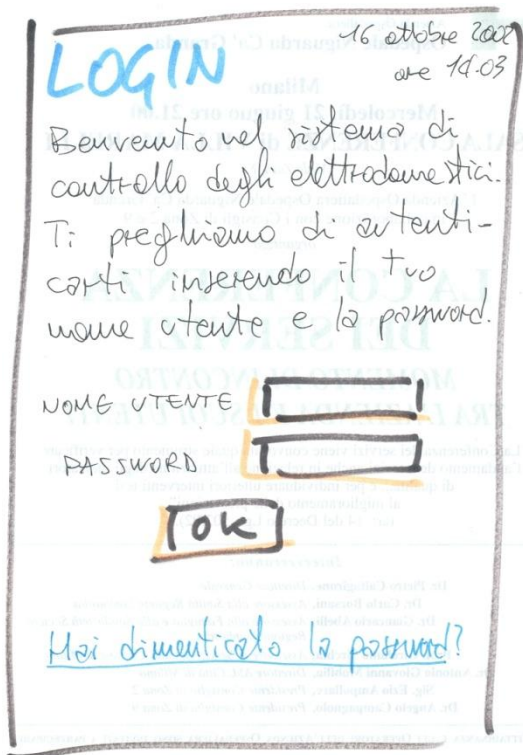 LOGIN
16 ottobre 2002
ore 14.03
Benvenuto nel sistema di
controllo degli elettrodomestici.
Ti preghiamo di autenti-
carti inserendo il tuo
nome utente e la password.
NOME UTENTE
PASSWORD
OK
Hai dimenticato la password?